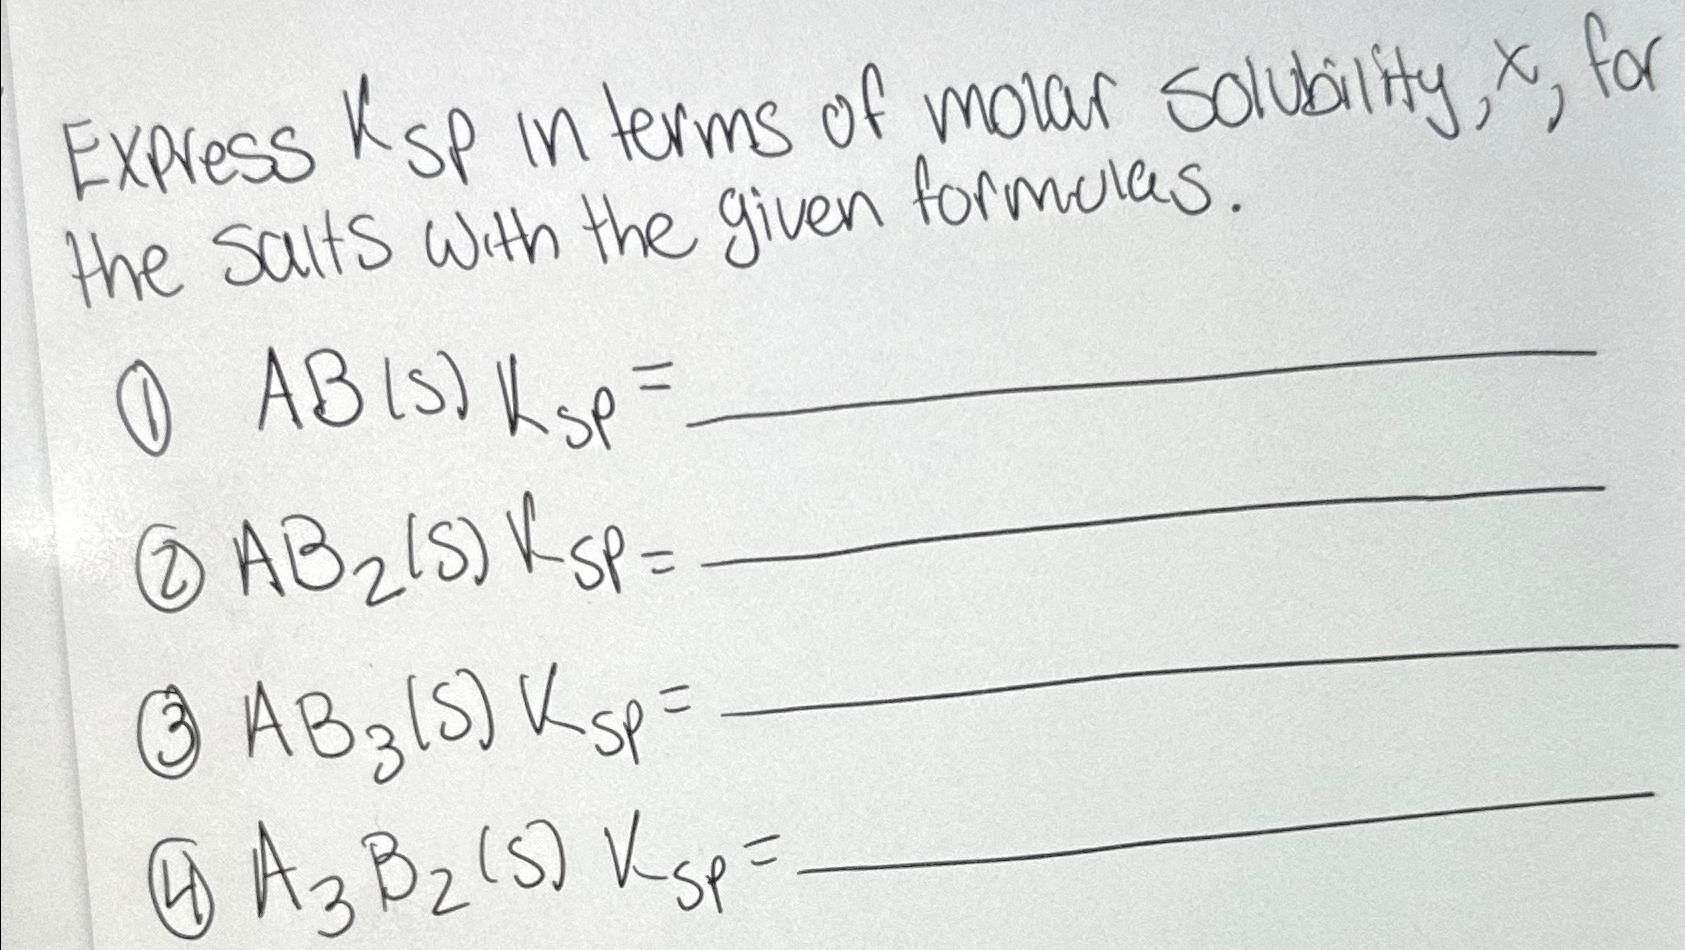 Express Ksp in terms of molar solubility, x, for
the salts with the given formulas.
① AB(s) Ksp = ____
② AB₂(s) Ksp = ____
③ AB₃(s) Ksp = ____
④ A₃B₂(s) Ksp = ____